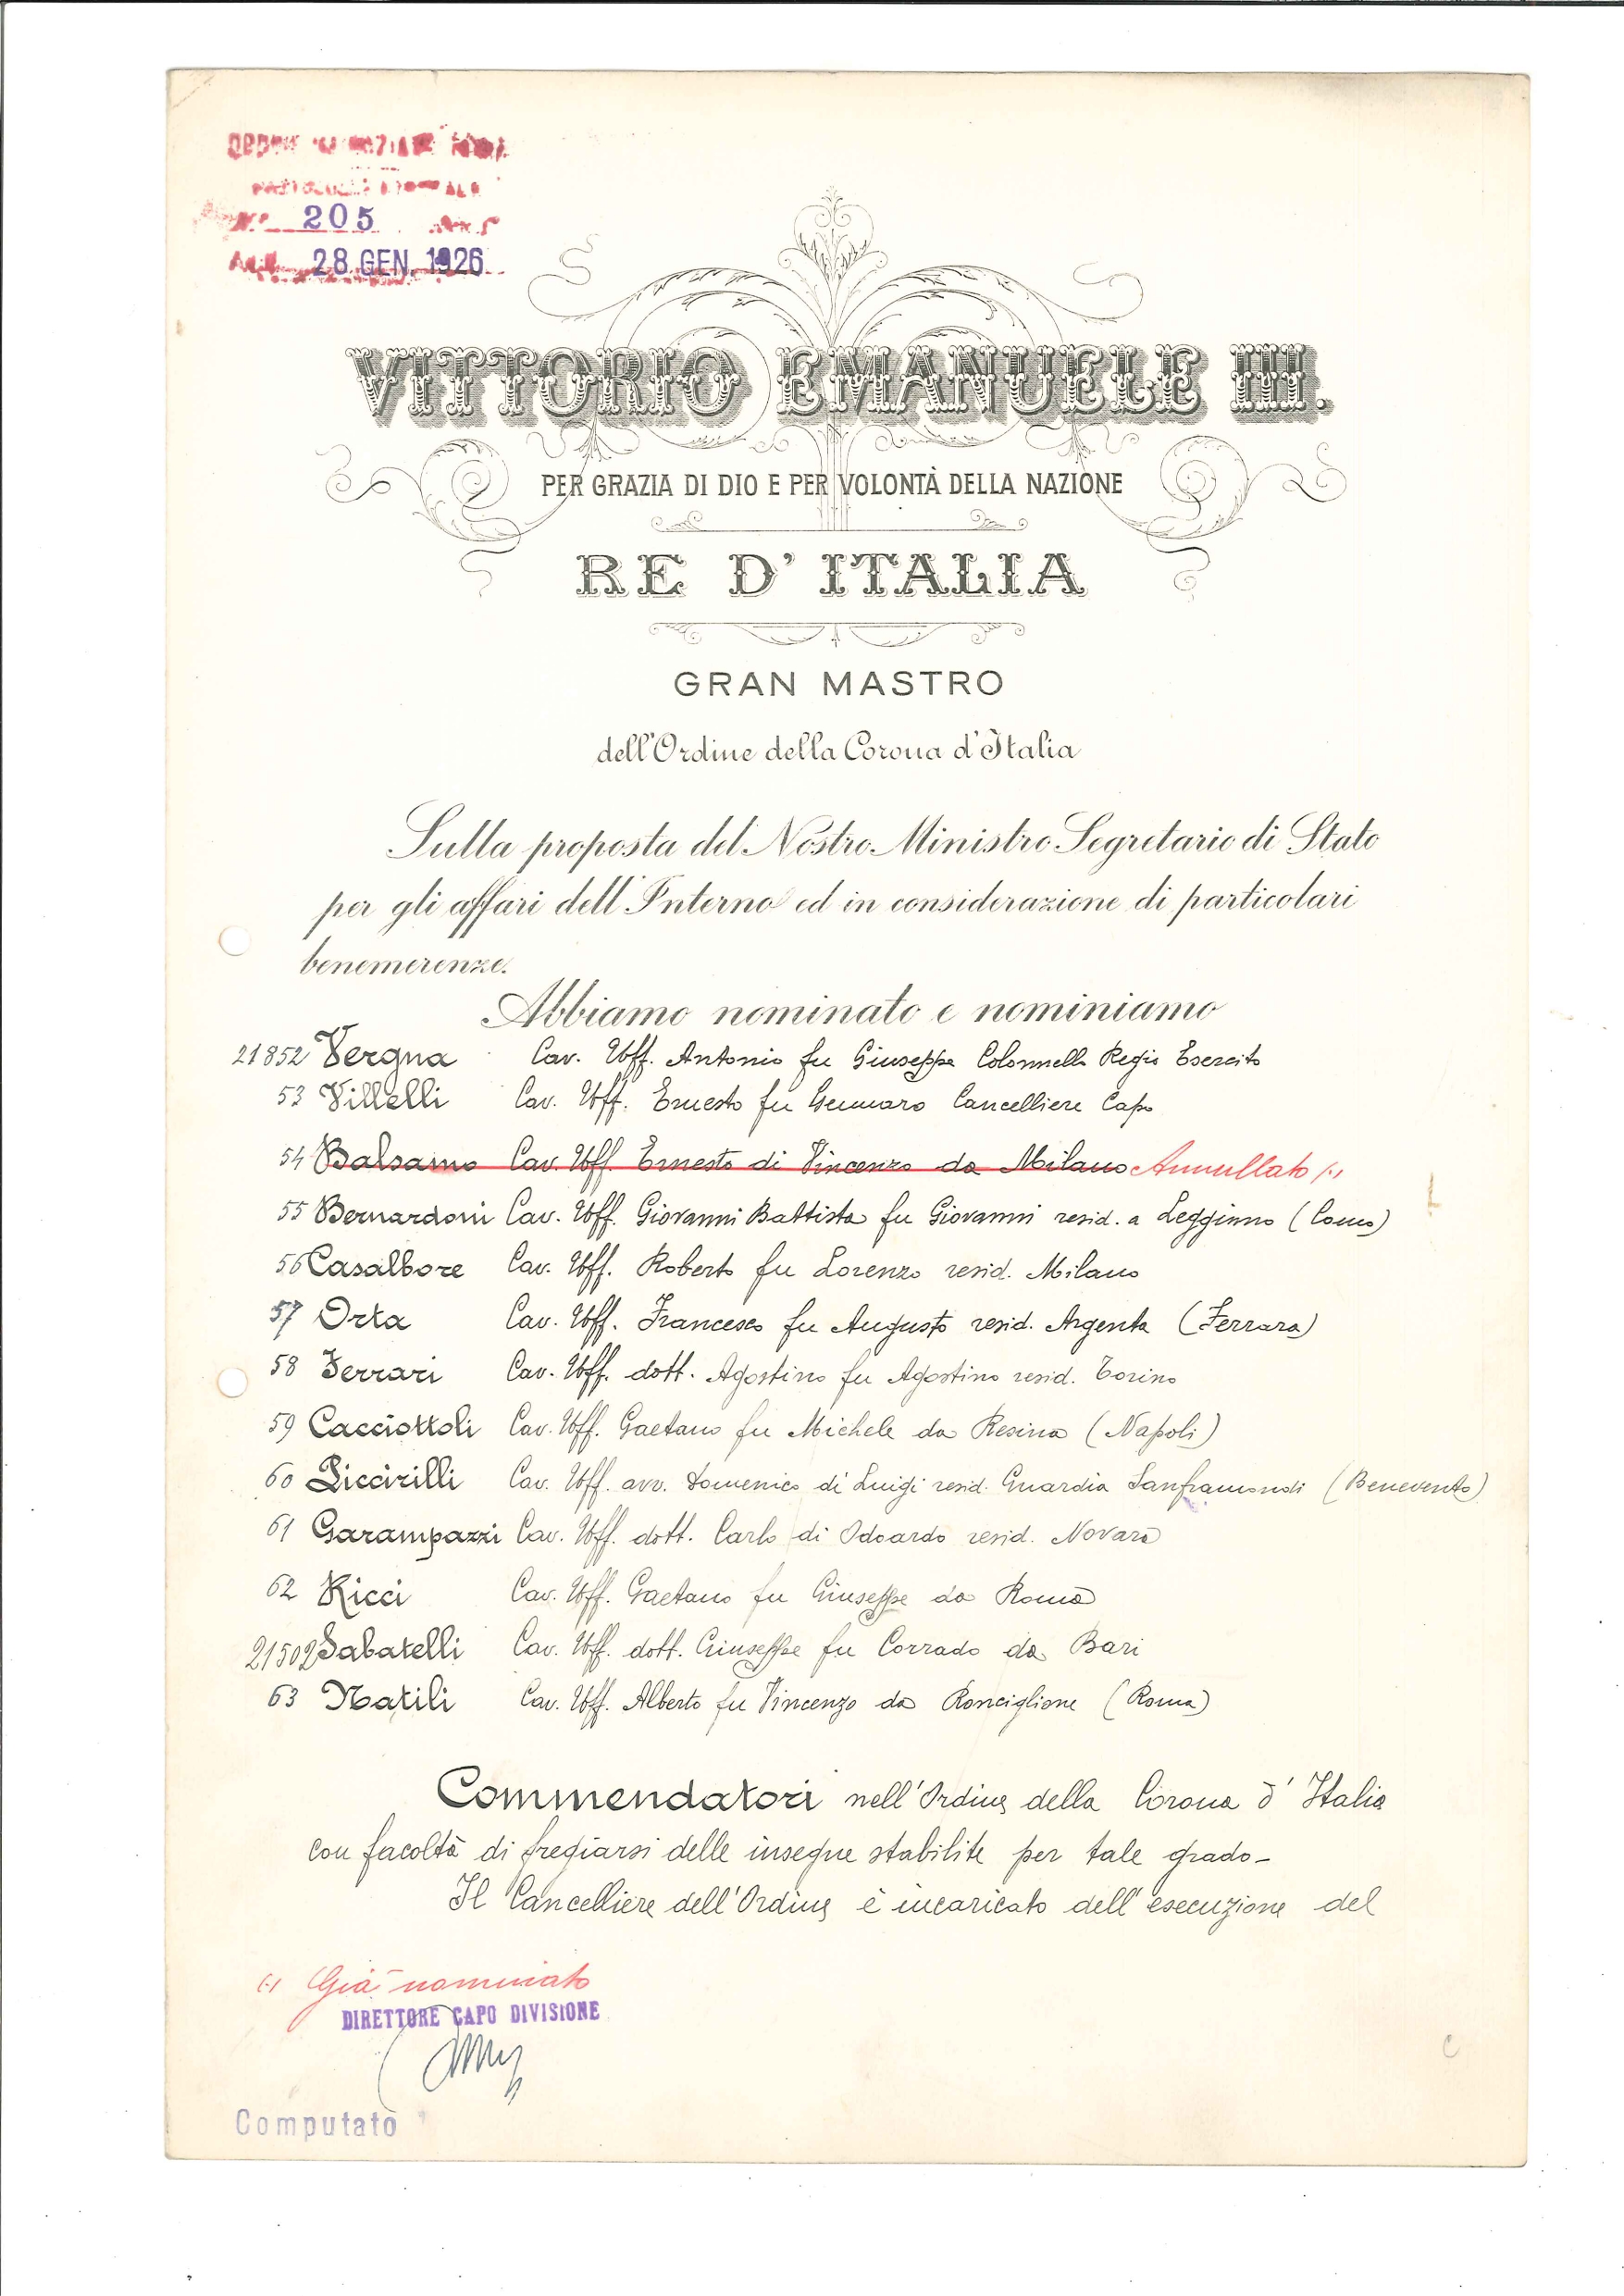 205
28 GEN. 1926
VITTORIO EMANUELE III.
PER GRAZIA DI DIO E PER VOLONTÀ DELLA NAZIONE
RE D'ITALIA
GRAN MASTRO
dell'Ordine della Corona d'Italia
Sulla proposta del Nostro Ministro Segretario di Stato
per gli affari dell'Interno ed in considerazione di particolari
benemerenze.
Abbiamo nominato e nominiamo
21852 Vergna Cav. Uff. Antonio fu Giuseppe Colonnello Regio Esercito
53 Villelli Cav. Uff. Ernesto fu Gennaro Cancelliere Capo
54 Balsamo Cav. Uff. Ernesto di Vincenzo da Milano Annullato (1)
55 Bernardoni Cav. Uff. Giovanni Battista fu Giovanni resid. a Leggiuno (Como)
56 Casalbore Cav. Uff. Roberto fu Lorenzo resid. Milano
57 Orta Cav. Uff. Francesco fu Augusto resid. Argenta (Ferrara)
58 Ferrari Cav. Uff. dott. Agostino fu Agostino resid. Torino
59 Cacciottoli Cav. Uff. Gaetano fu Michele da Resina (Napoli)
60 Piccirilli Cav. Uff. avv. Domenico di Luigi resid. Guardia Sanframondi (Benevento)
61 Garampazzi Cav. Uff. dott. Carlo di Odoardo resid. Novara
62 Ricci Cav. Uff. Gaetano fu Giuseppe da Roma
21502 Sabatelli Cav. Uff. dott. Giuseppe fu Corrado da Bari
63 Natili Cav. Uff. Alberto fu Vincenzo da Ronciglione (Roma)
Commendatori nell'Ordine della Corona d'Italia
con facoltà di fregiarsi delle insegne stabilite per tale grado-
Il Cancelliere dell'Ordine è incaricato dell'esecuzione del
(1) Già nominato
DIRETTORE CAPO DIVISIONE
Computato